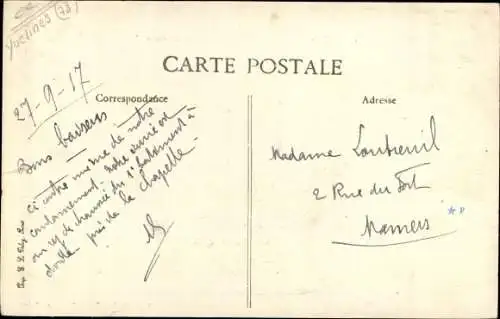 Yvelines (78)
CARTE POSTALE
Correspondance
Adresse
27-9-17
Bons baisers
ci contre me me de notre
cantonnement. Notre
au rez de chaussée du 1er batiment à
droite près de la chapelle.
Madame Loutreuil
2 Rue du Fort
Mamers